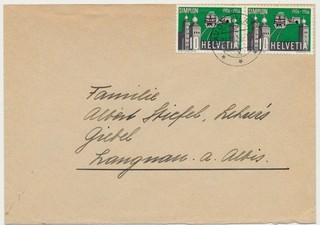 SIMPLON 1906-1956 SIMPLON 1906-1956
10 HELVETIA 10 HELVETIA
Familie
Albert Stiefel, Lehrers
Giebel
Langnau a. Albis.